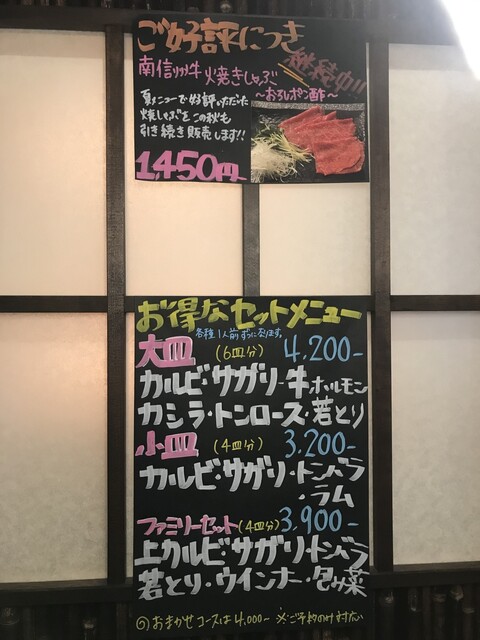 ご好評につき
継続中!!
南信州牛 焼きしゃぶ
～おろしポン酢～
夏メニューで好評いただいた
焼しゃぶをこの秋も
引き続き販売します!!
1,450円-
お得なセットメニュー
各種1人前ずつになります。
大皿 (6皿分) 4,200-
カルビ・サガリ・牛ホルモン
カシラ・トンロース・若とり
小皿 (4皿分) 3,200-
カルビ・サガリ・トンバラ
・ラム
ファミリーセット(4皿分) 3,900-
上カルビ・サガリ・トンバラ
若とり・ウインナー・包み菜
おまかせコースは4,000- ※ご予約のみ対応